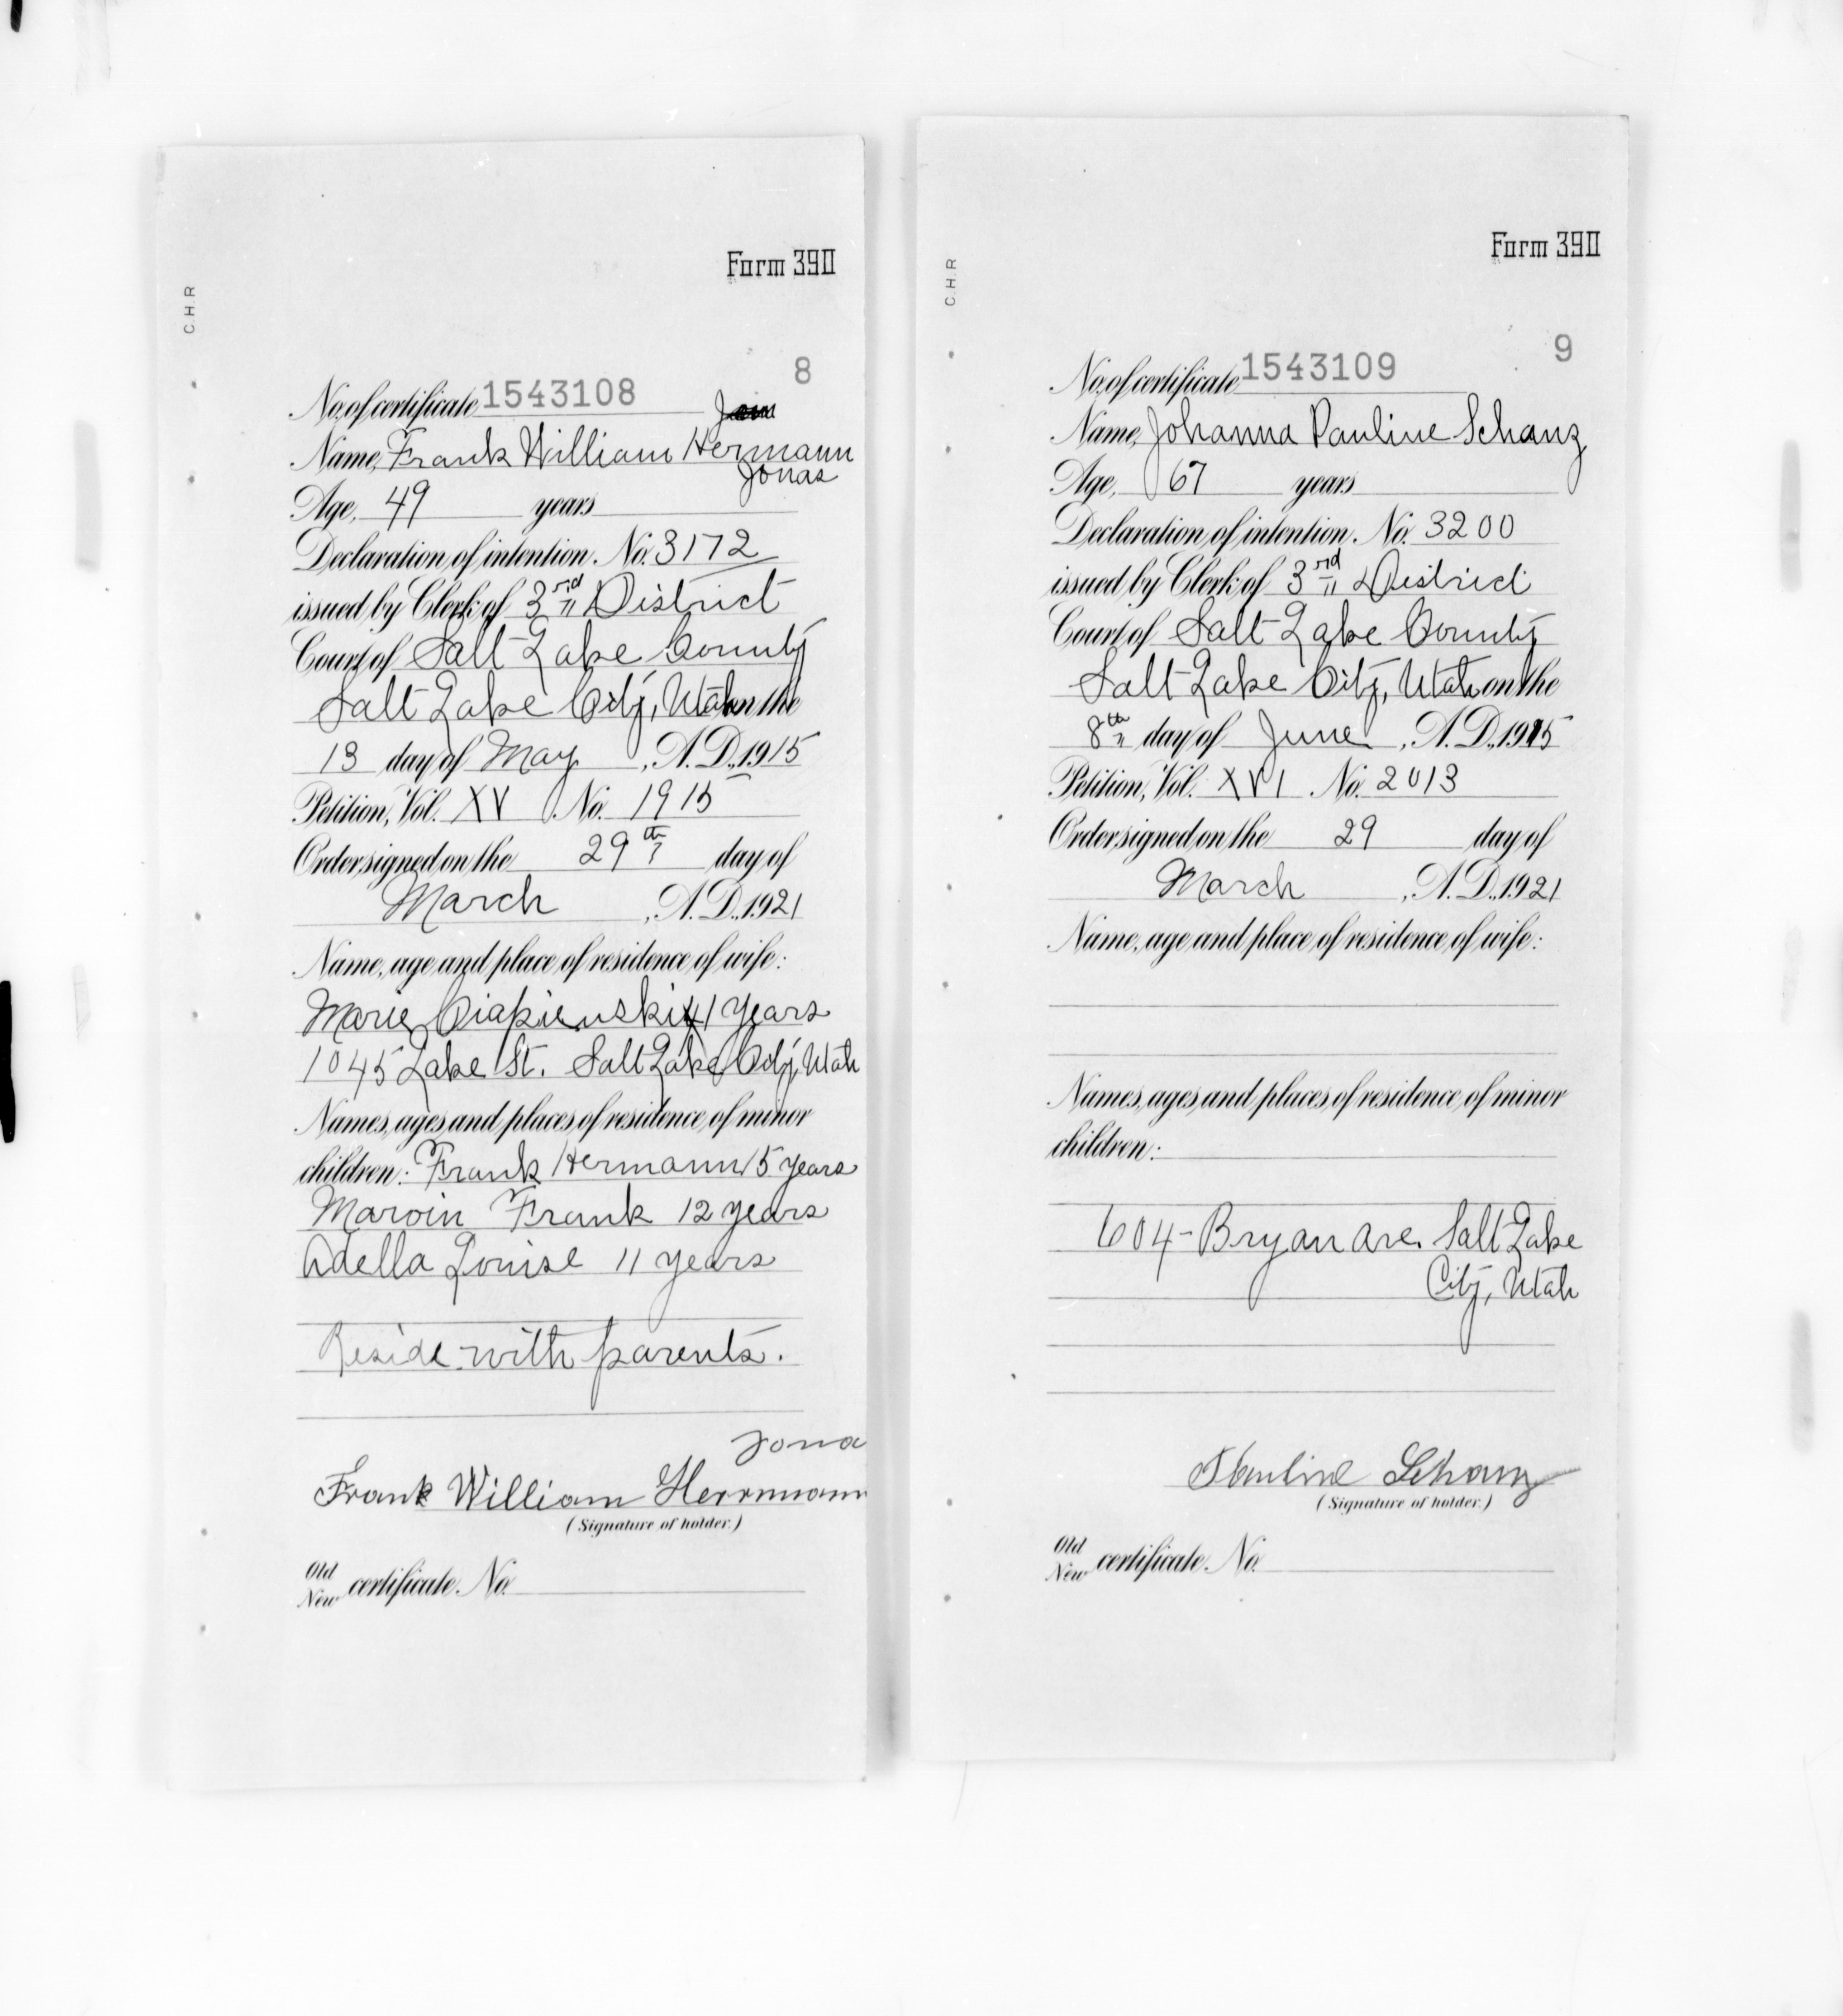 Form 390
C.H.R
8
No. of certificate 1543108
Name, Frank William Hermann
Jonas
Age, 49 years
Declaration of intention, No. 3172
issued by Clerk of 3rd District
Court of Salt Lake County
Salt Lake City, Utah on the
13 day of May, A.D., 1915
Petition, Vol. XV No. 1915
Order signed on the 29th day of
March, A.D., 1921
Name, age and place of residence of wife:
Marie 41 years
1045 Lake St. Salt Lake City, Utah
Names, ages and places of residence of minor
children: Frank Hermann 15 years
Marvin Frank 12 years
Adella Louise 11 years
Reside with parents.
Jona
Frank William Herrmann
(Signature of holder.)
Old
New certificate No.
Form 390
C.H.R
9
No. of certificate 1543109
Name, Johanna Pauline Schanz
Age, 67 years
Declaration of intention, No. 3200
issued by Clerk of 3rd District
Court of Salt Lake County
Salt Lake City, Utah on the
8th day of June, A.D., 1915
Petition, Vol. XVI No. 2013
Order signed on the 29 day of
March, A.D., 1921
Name, age and place of residence of wife:
Names, ages and places of residence of minor
children:
604 - Bryan Ave. Salt Lake
City, Utah
Pauline Schanz
(Signature of holder.)
Old
New certificate No.